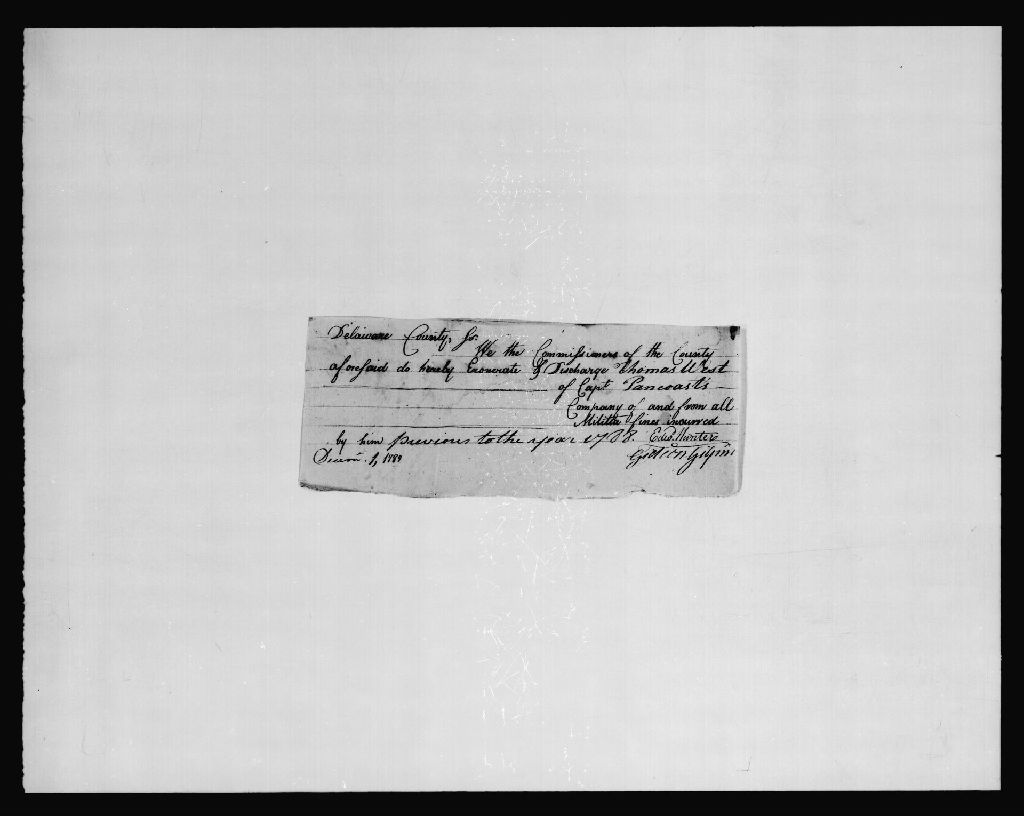 Delaware County, Ss.
We the Commissioners of the County
aforesaid do hereby Exonerate & Discharge Thomas West
of Capt Pancoast's
Company of and from all
Militia fines incurred
by him previous to the year 1788. Edw. Hunter
Decem. 1, 1789 Gideon Gilpin